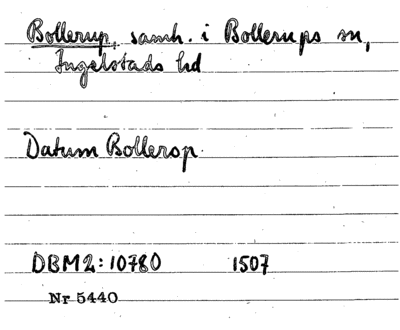 Bollerup, samh. i Bollerups sn,
Ingelstads hd
Datum Bollerop
DBM2:10780 1507
Nr 5440